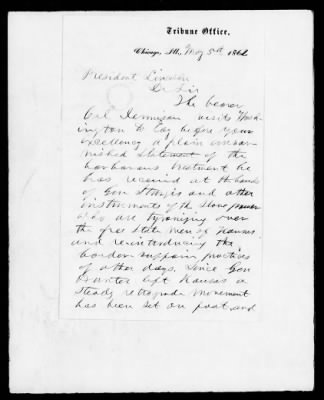 Tribune Office,
Chicago, Ill., May 5th 1862
President Lincoln
Dr Sir
The bearer
Col Jennison visits Wash-
ington to lay before your
excellency a plain unvar-
nished statement of the
barbarous treatment he
has received at the hands
of Gen Sturgis and other
instruments of the slave power
who are tyranizing over
the free state men of Kansas
and reintroducing the
border ruffian practices
of other days. Since Gen
Hunter left Kansas a
steady retrograde movement
has been set on foot and